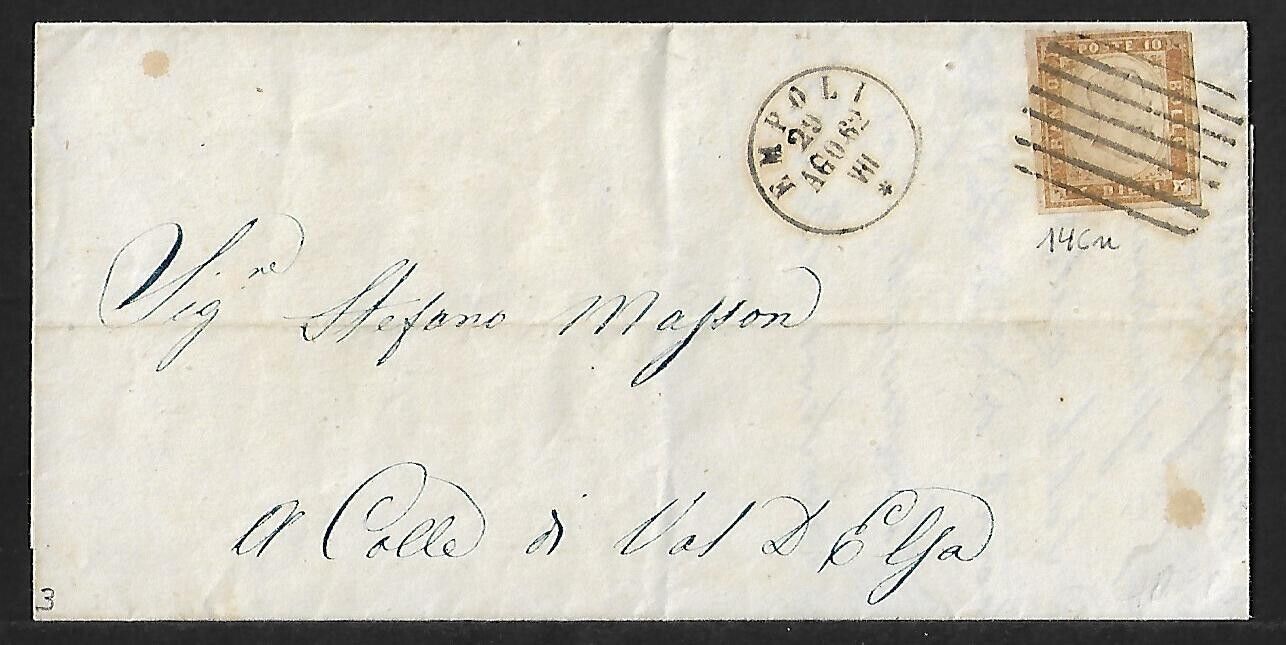 EMPOLI
29
AGO 62
VII
*
POSTE 10
BOLLO
DIECI
14Cu
Sig.re Stefano Masson
A Colle di Val D Elsa
3